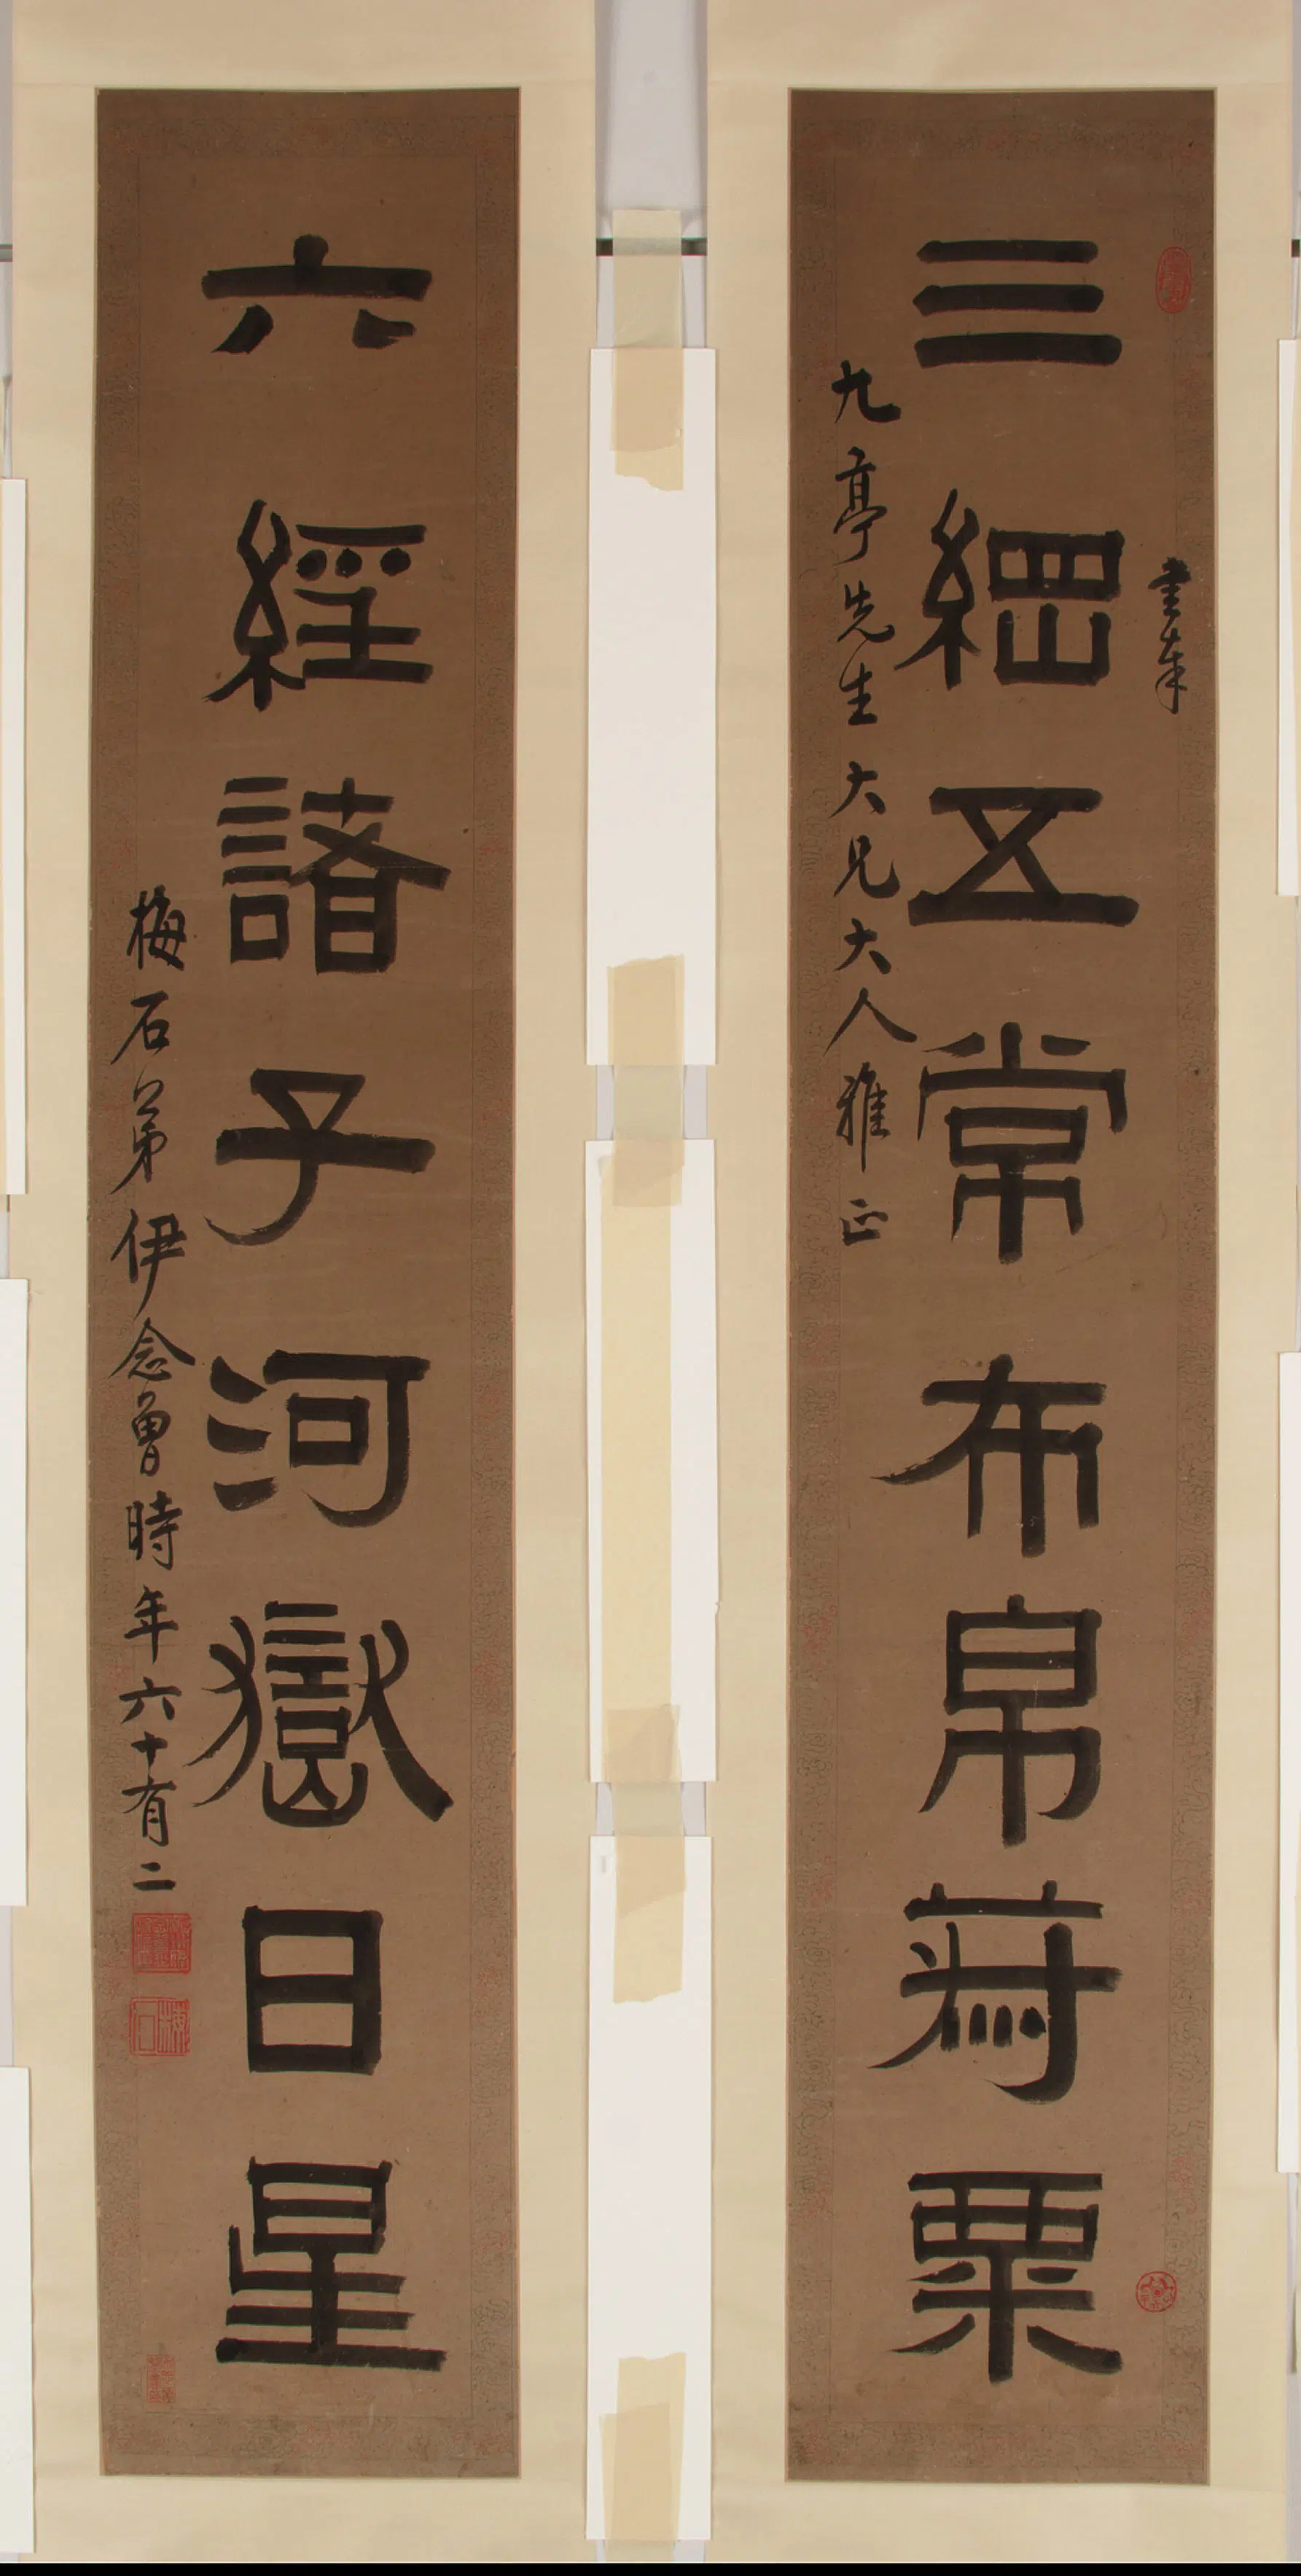 三綱五常布帛菽粟
書奉
九亭先生大兄大人雅正
六經諸子河嶽日星
梅石弟伊念曾時年六十有二